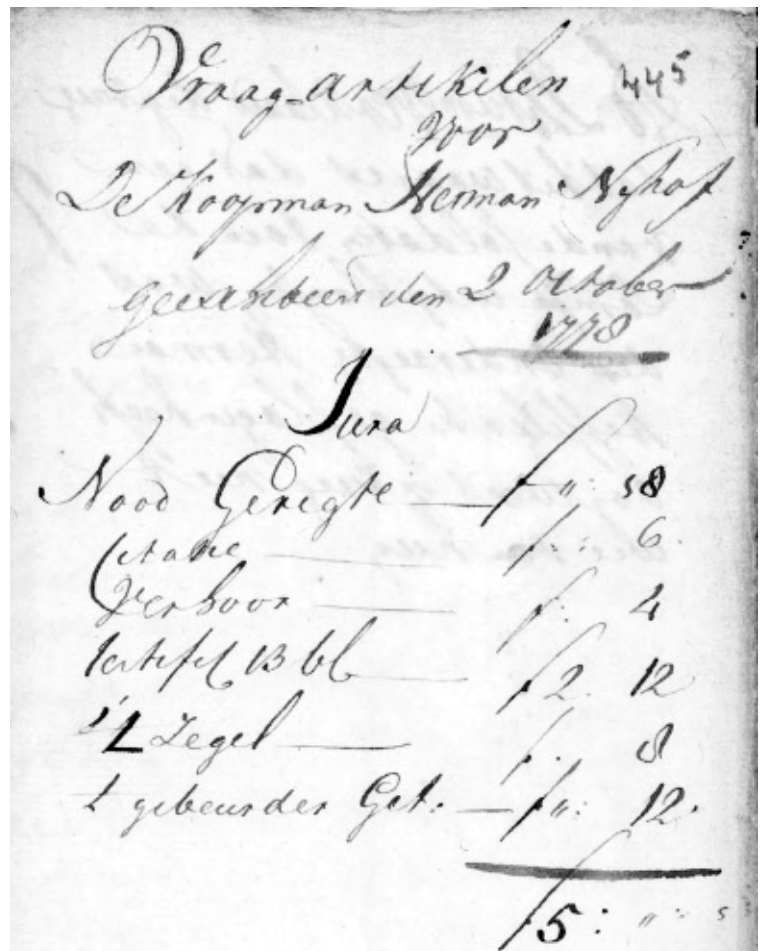 Vraag-artikelen 445
voor
De Koopman Herman Nyhof
geexhibeert den 2 October
1778
Jura
Nood Geregte — f „: 18
Citatie — f : : 6.
Verhoor — f : 4
13 bl — f 2. 12
't Zegel — f . 8
t gebeurder Get: — f „: 12.
f 5 : „ :